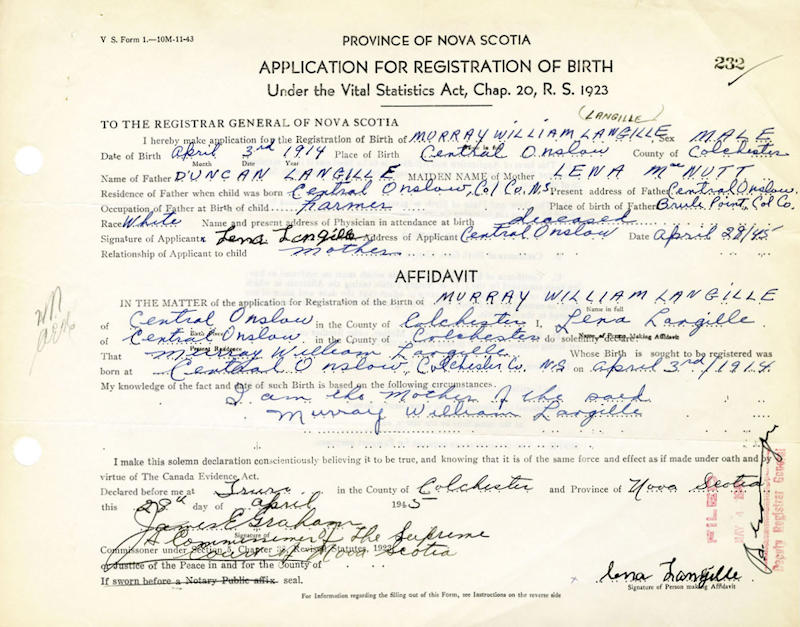 V S. Form 1.—10M-11-43
PROVINCE OF NOVA SCOTIA
232
APPLICATION FOR REGISTRATION OF BIRTH
Under the Vital Statistics Act, Chap. 20, R. S. 1923
(LANGILLE)
TO THE REGISTRAR GENERAL OF NOVA SCOTIA
I hereby make application for the Registration of Birth of MURRAY WILLIAM LANGILLE Sex MALE
Date of Birth April 3rd 1914 Place of Birth Central Onslow County of Colchester
Month Date Year
Name of Father DUNCAN LANGILLE MAIDEN NAME of Mother LENA MacNUTT
Residence of Father when child was born Central Onslow, Col Co, N.S Present address of Father Central Onslow.
Occupation of Father at Birth of child farmer Place of birth of Father Brule Point, Col Co.
Race White Name and present address of Physician in attendance at birth deceased
Signature of Applicant x Lena Langille Address of Applicant Central Onslow Date April 28/45
Relationship of Applicant to child mother
AFFIDAVIT
IN THE MATTER of the application for Registration of the Birth of MURRAY WILLIAM LANGILLE
Name in full
of Central Onslow in the County of Colchester I, Lena Langille
Birth Place Name of Person Making Affidavit
of Central Onslow in the County of Colchester do solemnly declare:
Present Residence
That Murray William Langille Whose Birth is sought to be registered was
born at Central Onslow, Colchester Co. N.S on April 3rd/1914
My knowledge of the fact and date of such Birth is based on the following circumstances.
I am the mother of the said
Murray William Langille
I make this solemn declaration conscientiously believing it to be true, and knowing that it is of the same force and effect as if made under oath and by
virtue of The Canada Evidence Act.
Declared before me at Truro in the County of Colchester and Province of Nova Scotia
this 28th day of April 1945
James E Graham
Signature of
A Commissioner of the Supreme
Commissioner under Section 5, Chapter 38, Revised Statutes, 1923
Court of Nova Scotia
or Justice of the Peace in and for the County of
If sworn before a Notary Public affix seal.
x Lena Langille
Signature of Person making Affidavit
For Information regarding the filling out of this Form, see Instructions on the reverse side
FILED
MAY 4
Deputy Registrar General